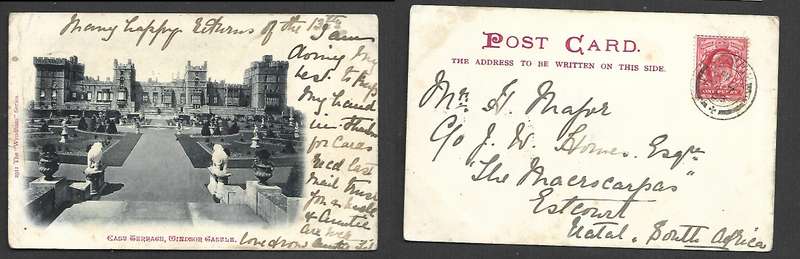 Many happy Returns of the 13th
I am
doing my
best to keep
my hand
in. Thanks
for Cards
Recd last
mail trust
you
& Auntie
are well
love from Auntie
2911 The "Wyndham" Series.
EAST TERRACE, WINDSOR CASTLE.
POST CARD.
THE ADDRESS TO BE WRITTEN ON THIS SIDE.
ONE PENNY
Mr. H. Major
C/o J. W. Homes. Esqre
"The Macrocarpas"
Estcourt
Natal. South Africa